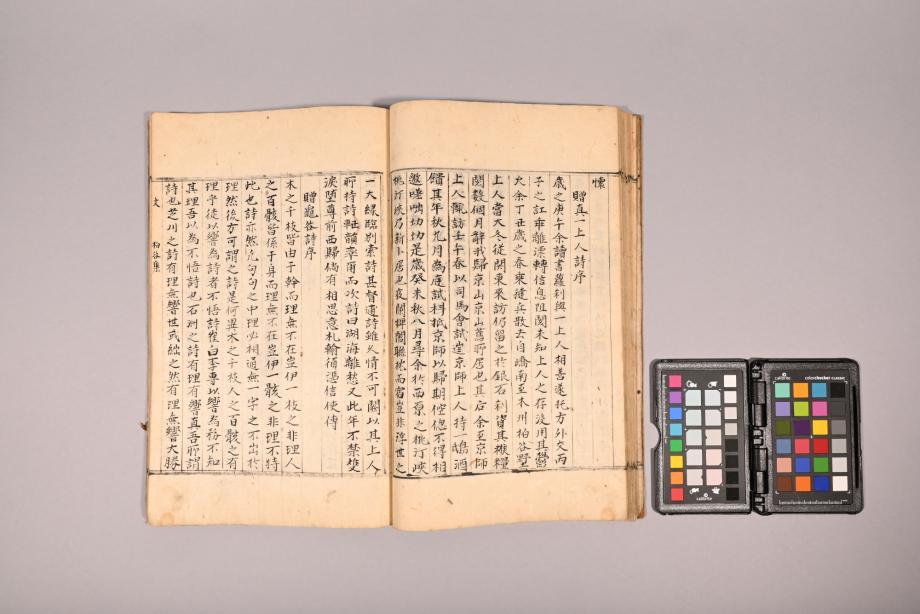 懷
贈真一上人詩序
歲之庚午余讀書蘿利與一上人相善遂托方外交丙
子之訌乖離漂轉信息阻閡未知上人之存沒用其鬱
火余丁丑歲之春東逢兵散去自嶠南至本州柏谷墅
上人當大冬從關東來訪仍留之於銀石利資其糗糧
閱數個月辭我歸京山京山舊所居也其后余至京師
上人輒訪壬午春以司馬會試造京師上人持一鴟酒
饋其年秋九月為庭試科抵京師以歸期倥傯不得相
邀嗟咄切切是歲癸未秋八月尋余於西景之桃汀峽
桃汀峽乃新卜居也夜闌掛聯枕而宿豈非浮世之
一大緣臨別索詩甚督逋詩雖久情不可閼以其上人
所持詩軸韻率爾而次詩曰湖海離愁又此年不禁雙
淚墮尊前西歸倘有相思意札翰須憑信使傳
贈龜谷詩序
木之千枝皆由于幹而理無不在豈伊一枝之非理人
之百骸皆係于身而理無不在豈伊一骸之非理不特
此也詩亦然凡句句之中理必相通無一字之不出於
理然後方可謂之詩是何異木之千枝人之百骸之有
理乎徒以響為詩者不悟詩崔白李專響為務不知
其理吾以為不悟詩也石洲之詩有理有響真吾所謂
詩也芝川之詩有理無響世或絀之然有理無響大勝
文 柏谷集
calibrite
colorchecker CLASSIC
calibrite